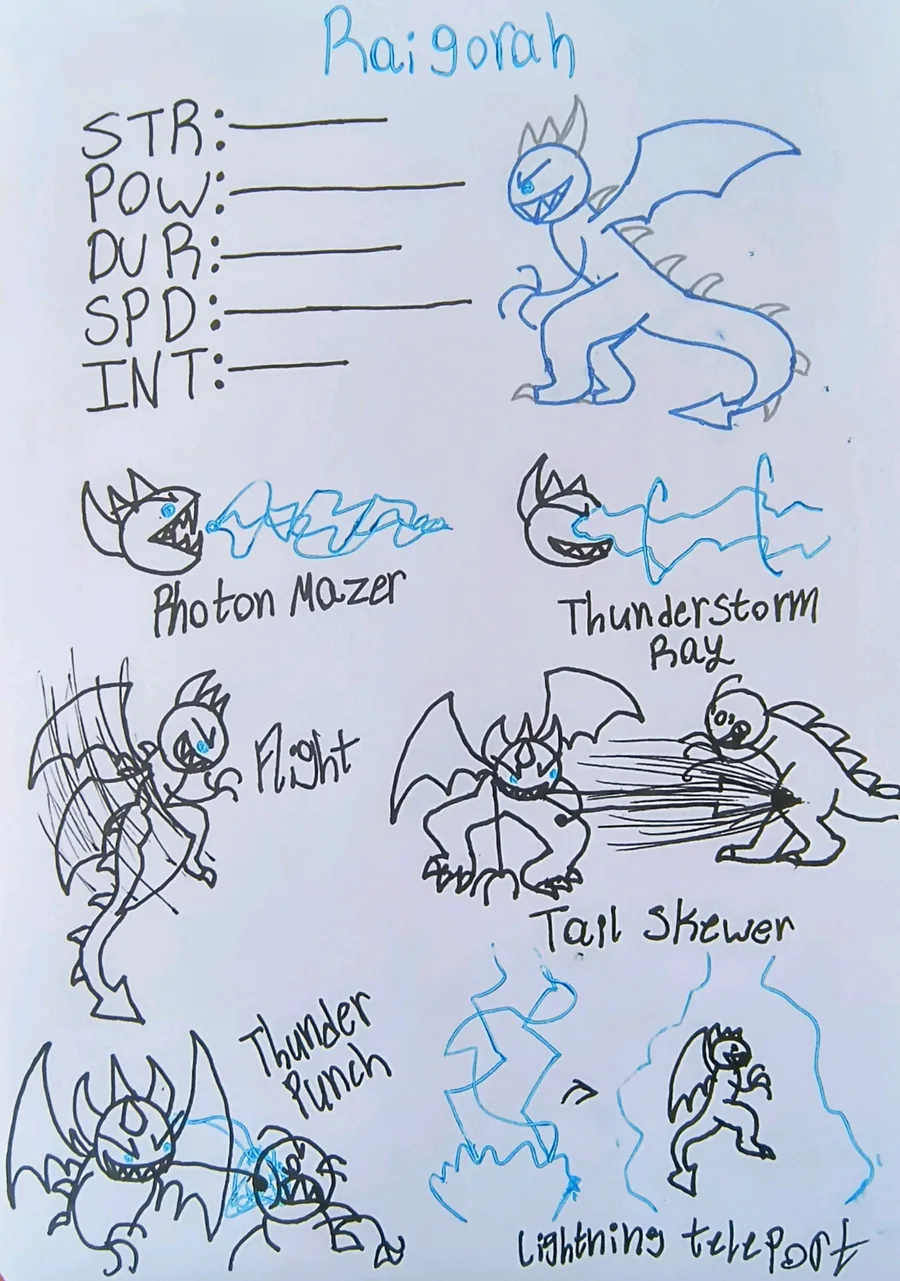 Raigorah
STR:
POW:
DUR:
SPD:
INT:
Photon Mazer
Thunderstorm
Ray
Flight
Tail Skewer
Thunder
Punch
Lightning teleport